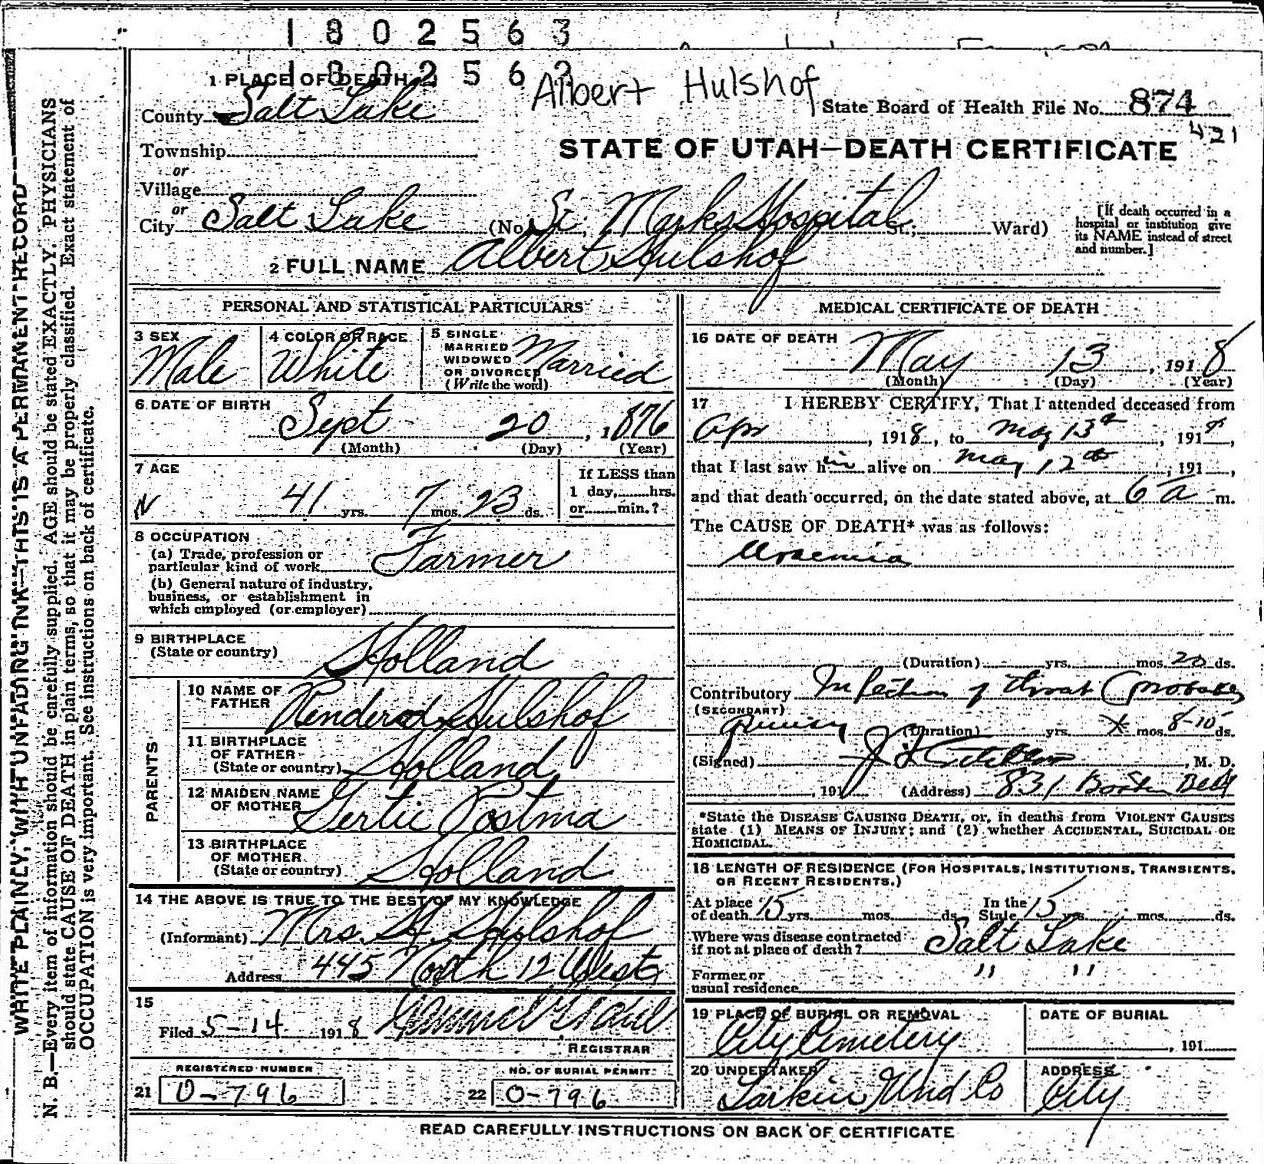 1802563
1802563
Albert Hulshof
1 PLACE OF DEATH
County Salt Lake
State Board of Health File No. 874
421
Township
or
Village
or
City Salt Lake (No. St. Marks Hospital St.; Ward)
STATE OF UTAH—DEATH CERTIFICATE
[If death occurred in a hospital or institution give its NAME instead of street and number.]
2 FULL NAME Albert Hulshof
PERSONAL AND STATISTICAL PARTICULARS
3 SEX Male
4 COLOR OR RACE White
5 SINGLE MARRIED WIDOWED OR DIVORCED (Write the word) Married
6 DATE OF BIRTH Sept 20, 1876
(Month) (Day) (Year)
7 AGE
41 yrs. 7 mos. 23 ds.
If LESS than 1 day, hrs. or min.?
8 OCCUPATION
(a) Trade, profession or particular kind of work Farmer
(b) General nature of industry, business, or establishment in which employed (or employer)
9 BIRTHPLACE (State or country) Holland
PARENTS
10 NAME OF FATHER Hulshof
11 BIRTHPLACE OF FATHER (State or country) Holland
12 MAIDEN NAME OF MOTHER Gertie Postma
13 BIRTHPLACE OF MOTHER (State or country) Holland
14 THE ABOVE IS TRUE TO THE BEST OF MY KNOWLEDGE
(Informant) Mrs. A. Hulshof
Address 445 North 12 West
15
Filed 5-14 1918
REGISTRAR
REGISTERED NUMBER
21 O-796
NO. OF BURIAL PERMIT
22 O-796
MEDICAL CERTIFICATE OF DEATH
16 DATE OF DEATH
May 13, 1918
(Month) (Day) (Year)
17 I HEREBY CERTIFY, That I attended deceased from
Apr, 1918, to May 13th, 1918,
that I last saw him alive on May 12th, 191 ,
and that death occurred, on the date stated above, at 6 a m.
The CAUSE OF DEATH* was as follows:
Uraemia
(Duration) yrs. mos. 20 ds.
Contributory Infection of throat (probably
(SECONDARY)
quinsy (Duration) yrs. mos. 8-10 ds.
(Signed) , M. D.
, 191 (Address) 831 Boston Bldg
*State the DISEASE CAUSING DEATH, or, in deaths from VIOLENT CAUSES state (1) MEANS OF INJURY; and (2) whether ACCIDENTAL, SUICIDAL OR HOMICIDAL.
18 LENGTH OF RESIDENCE (FOR HOSPITALS, INSTITUTIONS, TRANSIENTS, OR RECENT RESIDENTS.)
At place of death 15 yrs. mos. ds. In the State 15 yrs. mos. ds.
Where was disease contracted if not at place of death? Salt Lake
Former or usual residence " "
19 PLACE OF BURIAL OR REMOVAL City Cemetery
DATE OF BURIAL
, 191
20 UNDERTAKER Larkin Und Co
ADDRESS City
READ CAREFULLY INSTRUCTIONS ON BACK OF CERTIFICATE
WRITE PLAINLY, WITH UNFADING INK—THIS IS A PERMANENT RECORD
N. B.—Every item of information should be carefully supplied. AGE should be stated EXACTLY. PHYSICIANS
should state CAUSE OF DEATH in plain terms, so that it may be properly classified. Exact statement of
OCCUPATION is very important. See instructions on back of certificate.